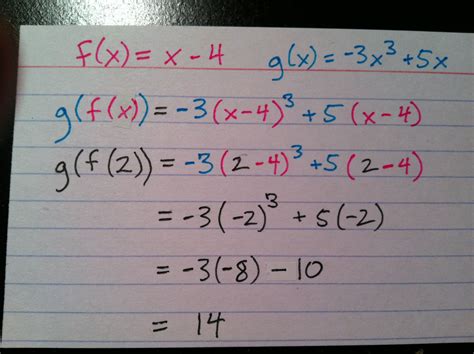 f(x) = x - 4 g(x) = -3x³ + 5x
g(f(x)) = -3(x-4)³ + 5(x-4)
g(f(2)) = -3(2-4)³ + 5(2-4)
= -3(-2)³ + 5(-2)
= -3(-8) - 10
= 14